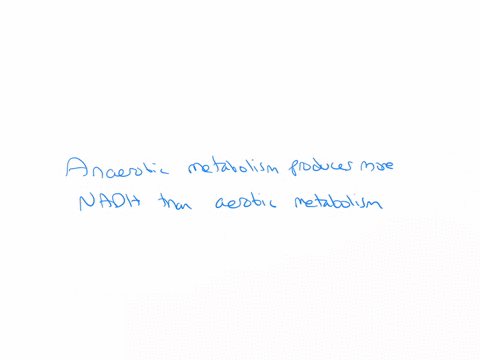 Anaerobic metabolism produces more
NADH than aerobic metabolism